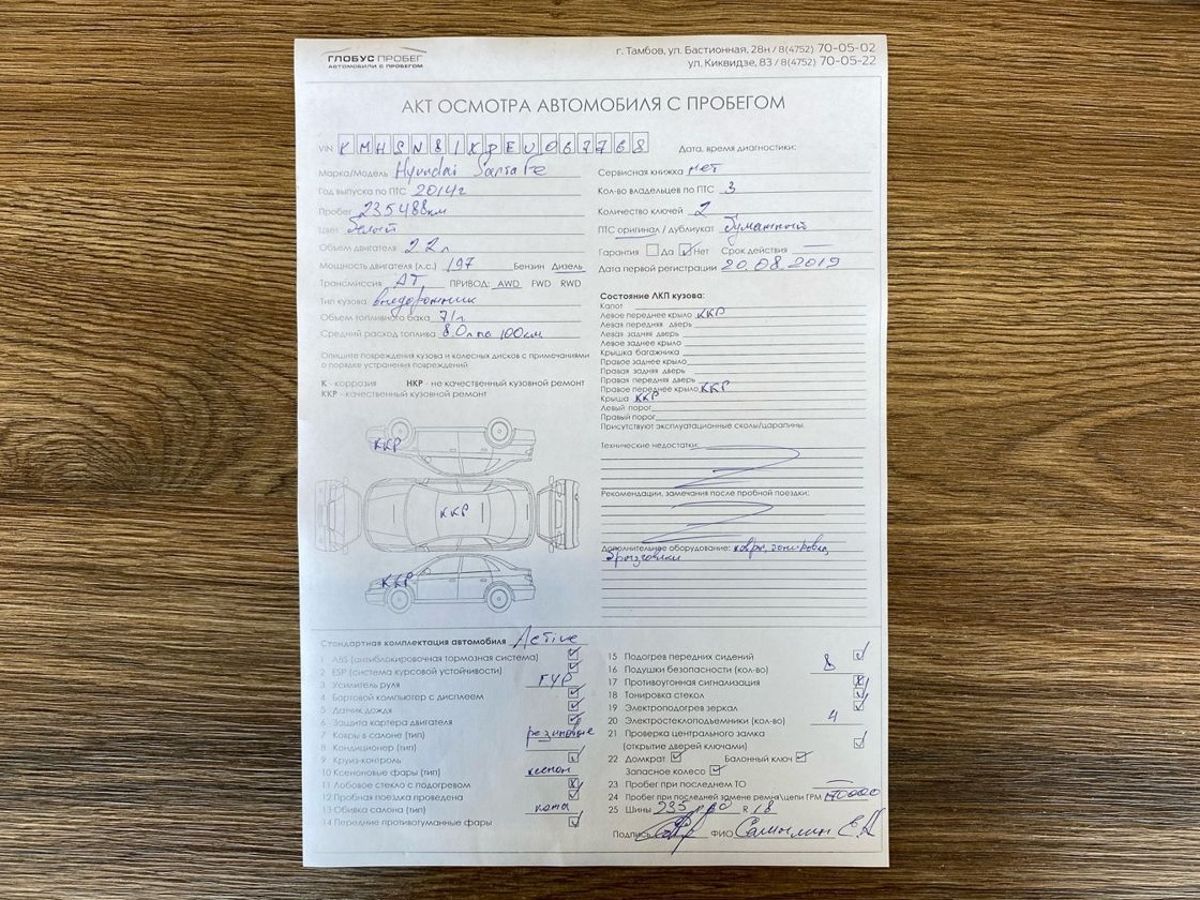 ГЛОБУС ПРОБЕГ
АВТОМОБИЛИ С ПРОБЕГОМ
г. Тамбов, ул. Бастионная, 28н / 8(4752) 70-05-02
ул. Киквидзе, 83 / 8(4752) 70-05-22
АКТ ОСМОТРА АВТОМОБИЛЯ С ПРОБЕГОМ
VIN KMHSN81KPEU067768
Дата, время диагностики:
Марка/Модель Hyundai SantaFe
Год выпуска по ПТС 2014г
Пробег 235488км
Цвет белый
Объем двигателя 2.2 л
Мощность двигателя (л.с.) 197 Бензин Дизель
Трансмиссия АТ ПРИВОД: AWD FWD RWD
Тип кузова внедорожник
Объем топливного бака 71 л.
Средний расход топлива 8.0 л на 100км
Сервисная книжка нет
Кол-во владельцев по ПТС 3
Количество ключей 2
ПТС оригинал / дубликат бумажный
Гарантия Да Нет Срок действия
Дата первой регистрации 20.08.2019
Опишите повреждения кузова и колесных дисков с примечаниями
о порядке устранения повреждений
К - коррозия НКР - не качественный кузовной ремонт
ККР - качественный кузовной ремонт
ККР
ККР
ККР
Состояние ЛКП кузова:
Капот
Левое переднее крыло ККР
Левая передняя дверь
Левая задняя дверь
Левое заднее крыло
Крышка багажника
Правое заднее крыло
Правая задняя дверь
Правая передняя дверь
Правое переднее крыло ККР
Крыша ККР
Левый порог
Правый порог
Присутствуют эксплуатационные сколы/царапины.
Технические недостатки:
Рекомендации, замечания после пробной поездки:
Дополнительное оборудование: ковры, тонировка,
брызговики
Стандартная комплектация автомобиля Active
1 ABS (антиблокировочная тормозная система)
2 ESP (система курсовой устойчивости)
3 Усилитель руля ГУР
4 Бортовой компьютер с дисплеем
5 Датчик дождя
6 Защита картера двигателя
7 Ковры в салоне (тип) резиновые
8 Кондиционер (тип)
9 Круиз-контроль
10 Ксеноновые фары (тип) ксенон
11 Лобовое стекло с подогревом
12 Пробная поездка проведена
13 Обивка салона (тип) кожа
14 Передние противотуманные фары
15 Подогрев передних сидений
16 Подушки безопасности (кол-во) 8
17 Противоугонная сигнализация
18 Тонировка стекол
19 Электроподогрев зеркал
20 Электростеклоподъемники (кол-во) 4
21 Проверка центрального замка
(открытие дверей ключами)
22 Домкрат Балонный ключ
Запасное колесо
23 Пробег при последнем ТО
24 Пробег при последней замене ремня\цепи ГРМ 170000
25 Шины 235 / 60 R 18
Подпись ФИО